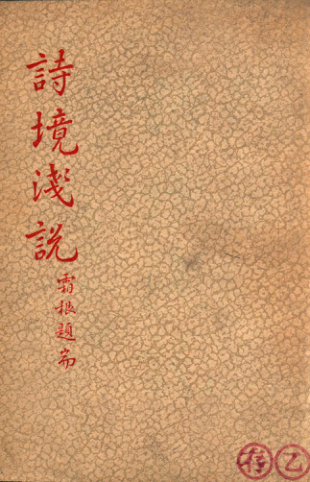 詩境淺說
霜根題耑
乙存